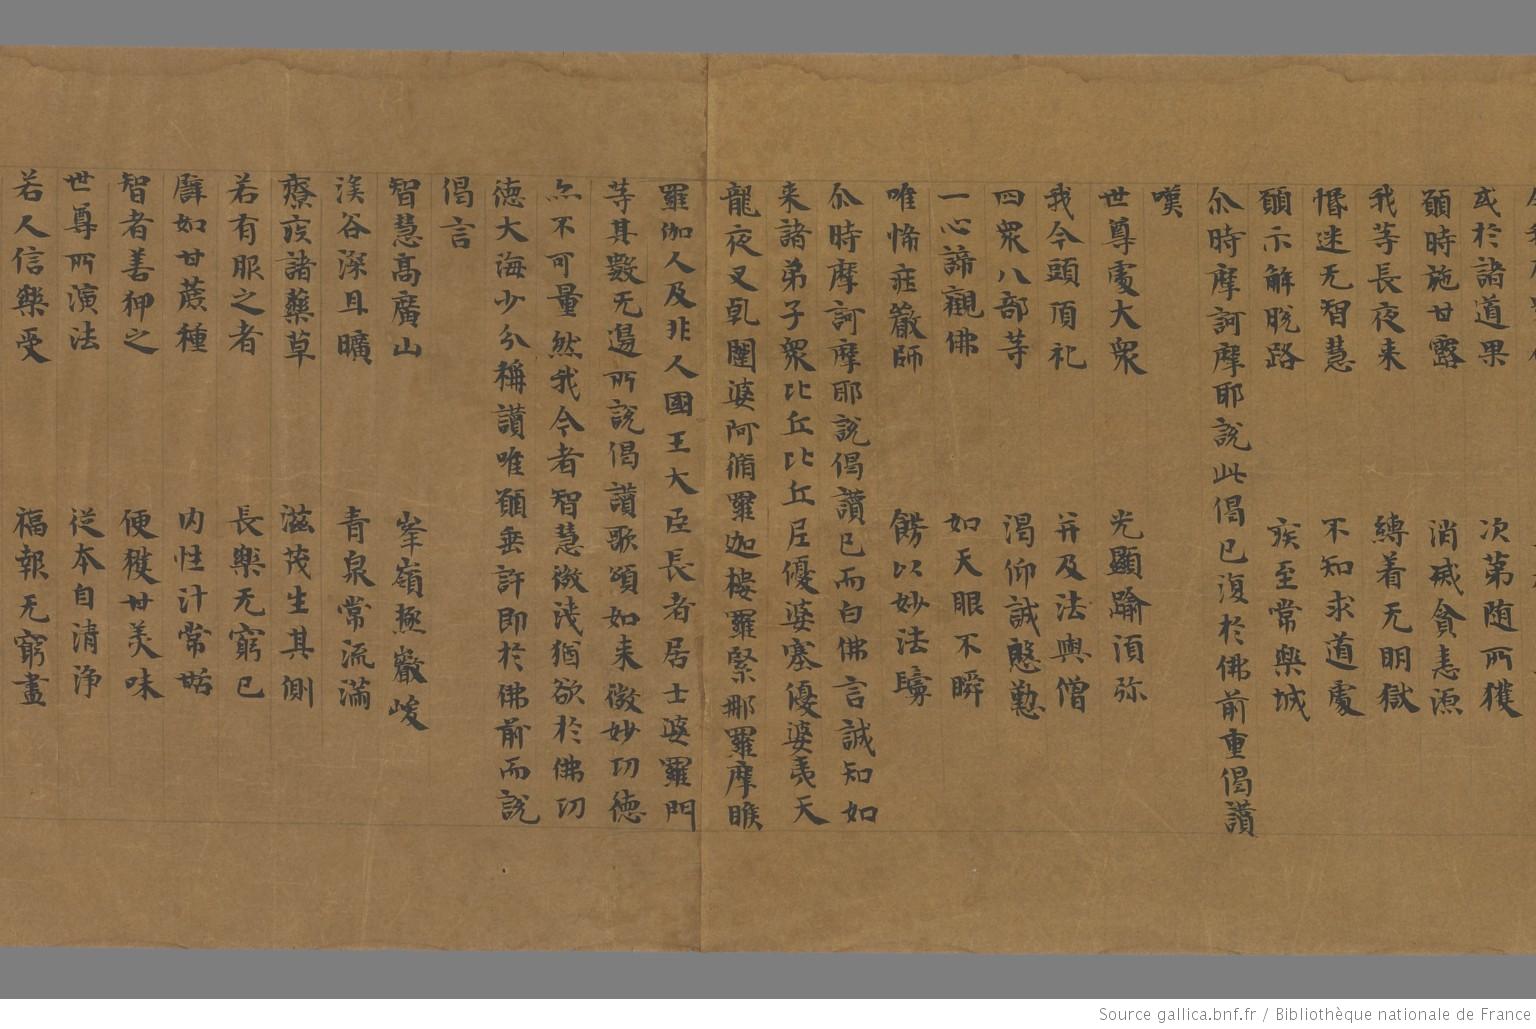 或於諸道果　次第随所獲
願時施甘露　消滅貪恚源
我等長夜来　縛着无明獄
惛迷无智慧　不知求道處
願示解脱路　疾至常樂城
尒時摩訶摩耶說此偈已復於佛前重偈讃
嘆
世尊處大衆　光顯踰須弥
我今頭頂礼　并及法與僧
四衆八部等　渴仰誠慇懃
一心諦觀佛　如天眼不瞬
唯悕莊嚴師　餝以妙法鬘
尒時摩訶摩耶說偈讃已而白佛言誠知如
来諸弟子衆比丘比丘尼優婆塞優婆夷天
龍夜叉乹闥婆阿脩羅迦樓羅緊那羅摩睺
羅伽人及非人國王大臣長者居士婆羅門
等其數无邊所說偈讃歌頌如来微妙功德
亦不可量然我今者智慧微淺猶欲於佛功
德大海少分稱讃唯願垂許即於佛前而說
偈言
智慧高廣山　峯嶺極巖峻
溪谷深且曠　青泉常流滿
療疾諸藥草　滋茂生其側
若有服之者　長樂无窮已
譬如甘蔗種　内性汁常甛
智者善柙之　便獲甘美味
世尊所演法　從本自清淨
若人信樂受　福報无窮盡
Source gallica.bnf.fr / Bibliothèque nationale de France